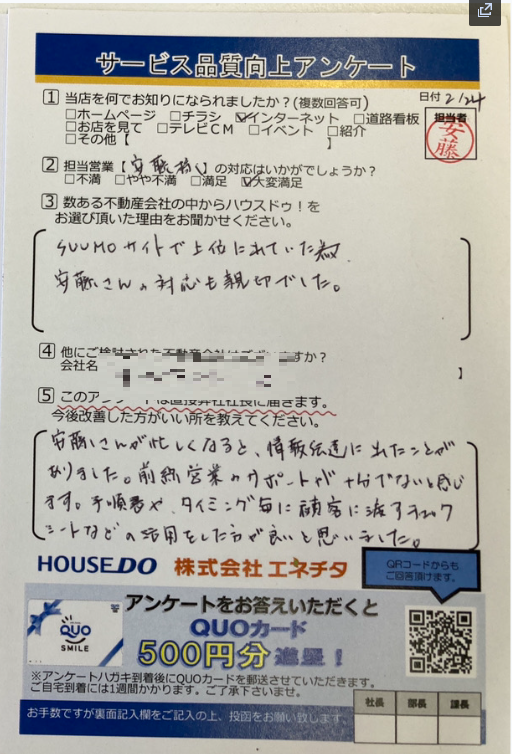 サービス品質向上アンケート
1 当店を何でお知りになられましたか?(複数回答可)
日付 2/24
□ホームページ □チラシ ☑インターネット □道路看板
□お店を見て □テレビCM □イベント □紹介
□その他【 】
担当者
安藤
2 担当営業【安藤様】の対応はいかがでしょうか?
□不満 □やや不満 □満足 ☑大変満足
3 数ある不動産会社の中からハウスドゥ!を
お選び頂いた理由をお聞かせください。
SUUMOサイトで上位に出ていた為
安藤さんの対応も親切でした。
4 他にご検討された不動産会社は すか?
会社名 】
5 このアン は直接弊社社長に届きます。
今後改善した方がいい所を教えてください。
安藤さんが忙しくなると、情報伝達に出たことが
ありました。前線営業のサポートが十分でないと感じ
ます。手順書や、タイミング毎に顧客に渡すチェック
シートなどの活用をした方が良いと思いました。
HOUSEDO 株式会社 エネチタ
QRコードからも
ご回答頂けます。
QUO
SMILE
アンケートをお答えいただくと
QUOカード
500円分 進呈!
※アンケートハガキ到着後にQUOカードを郵送させていただきます。
ご自宅到着には1週間かかります。ご了承下さいませ。
お手数ですが裏面記入欄をご記入の上、投函をお願い致します。
社長 部長 課長